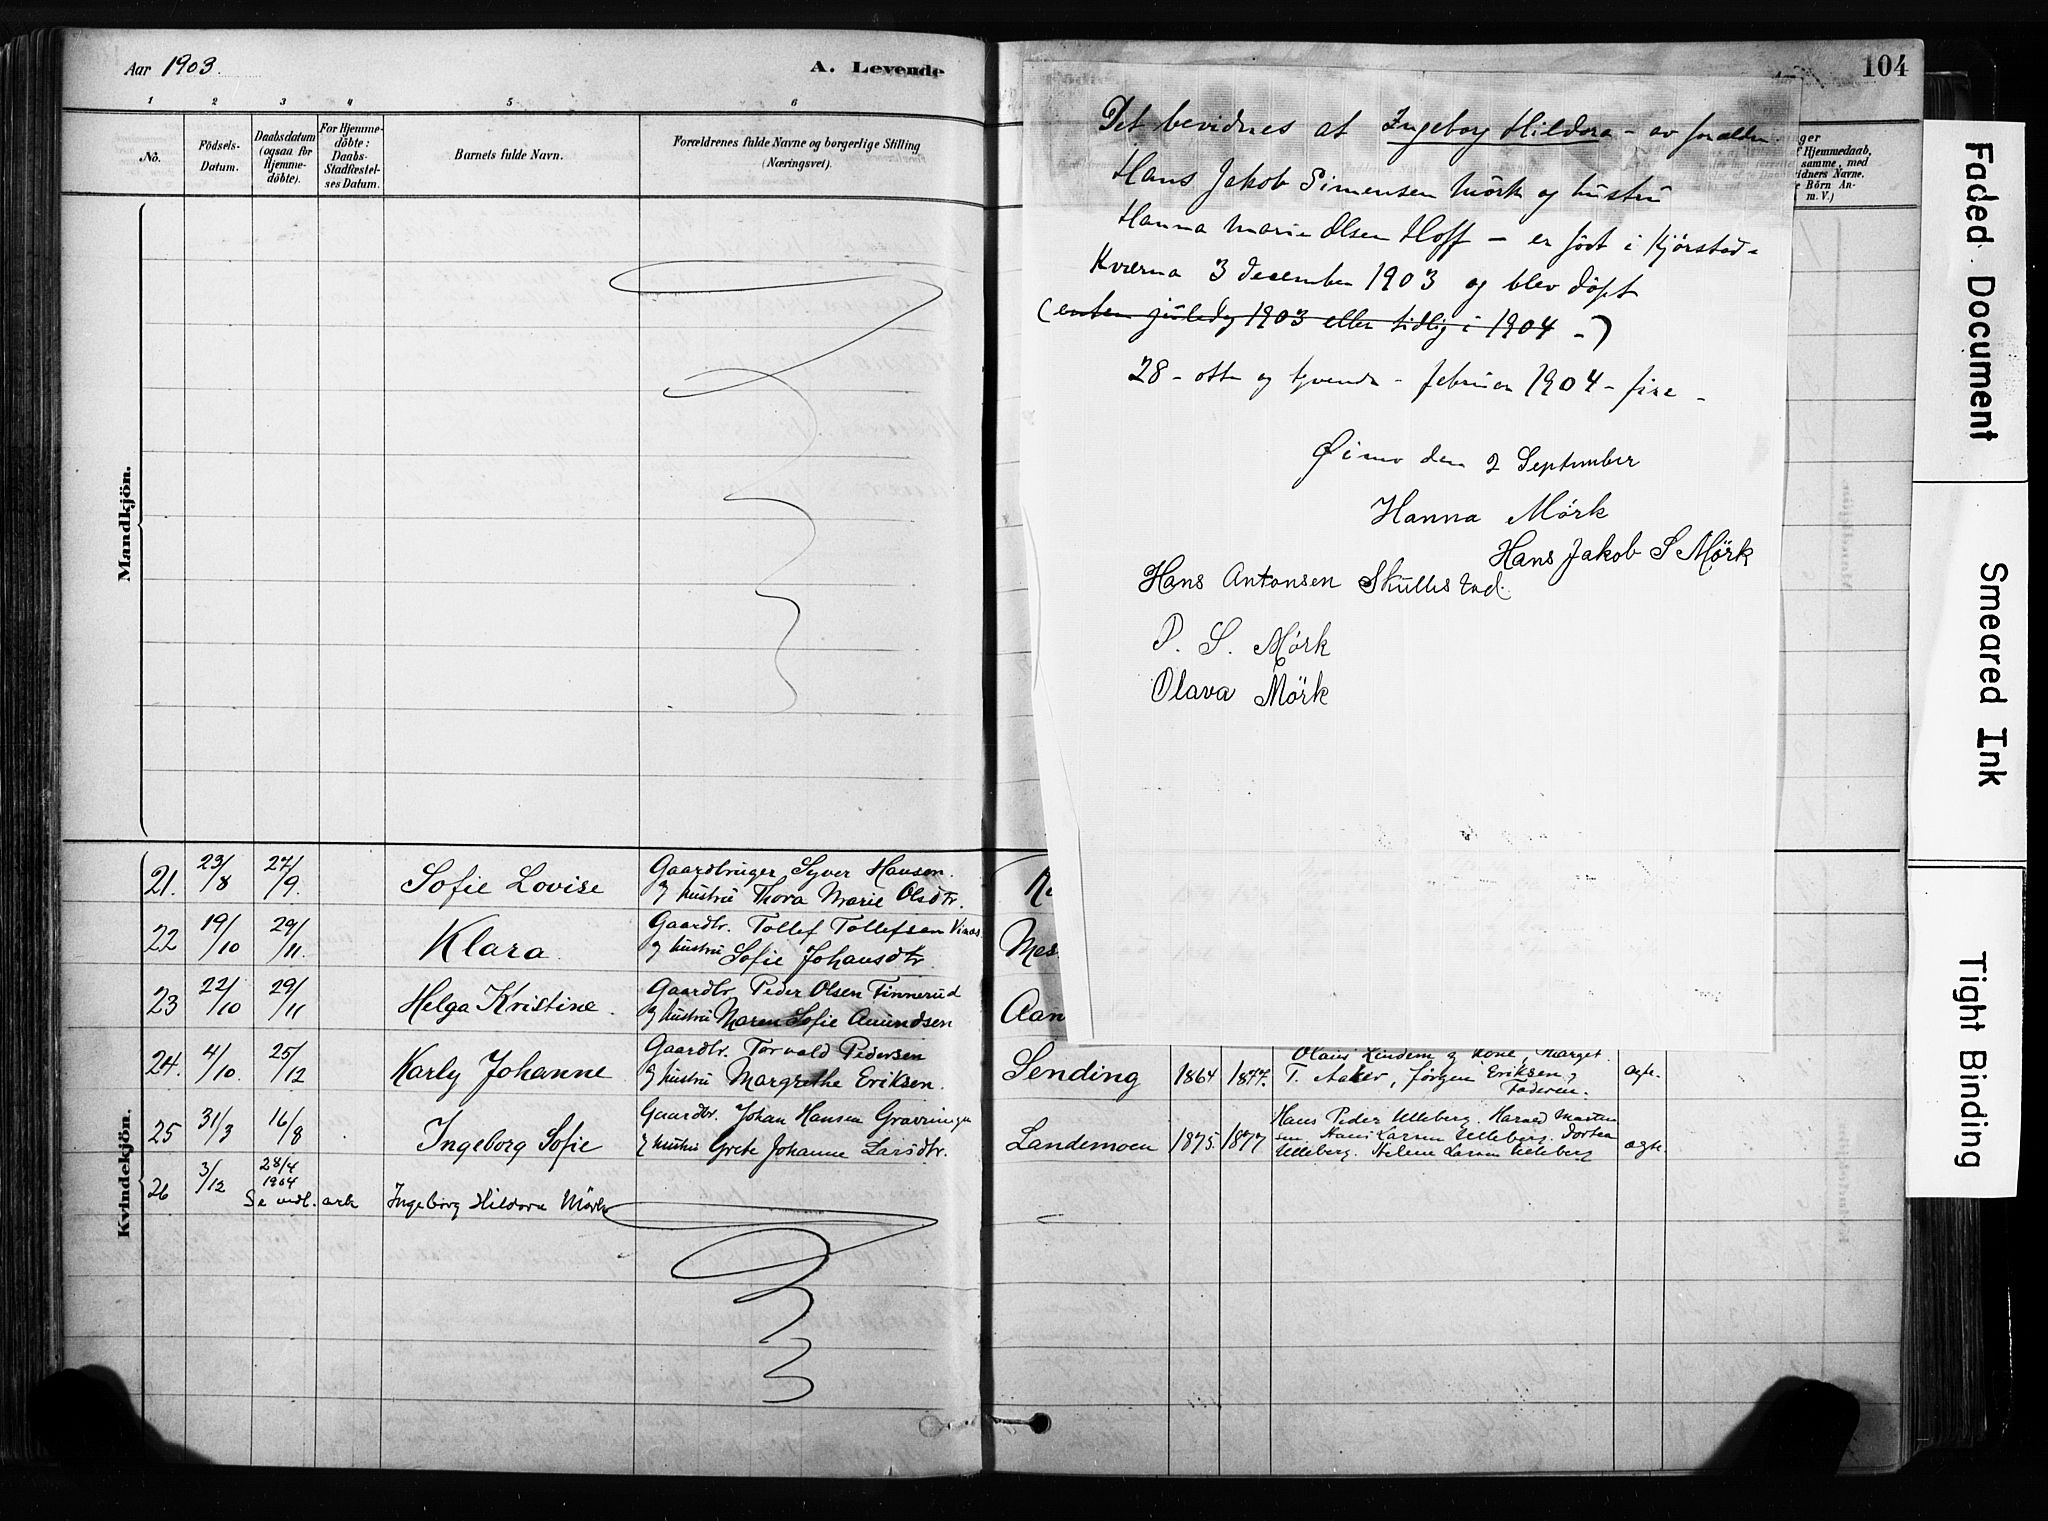 Aar 1903.
A. Levende
1 2 3 4 5 6
No.
Födsels-
Datum.
Daabsdatum
(ogsaa for
Hjemme-
döbte).
For Hjemme-
döbte:
Daabs-
Stadfæstel-
ses Datum.
Barnets fulde Navn.
Forældrenes fulde Navne og borgerlige Stilling
(Næringsvei)
Mandkjön.
Kvindekjön.
21. 23/8 27/9. Sofie Lovise Gaardbruger Syver Hansen.
og hustru Thora Marie Olsdtr.
22 19/10 29/11. Klara Gaardbr. Tollef Tollefsen
og hustru Sofie Johansdtr
23 22/10 29/11 Helga Kristine. Gaardbr Peder Olsen Finnerud
og hustru Maren Sofie Amundsen
24. 4/10. 25/12 Karly Johanne Gaardbr. Torvald Pedersen
og hustru Margrethe Eriksen.
25 31/3 16/8 Ingeborg Sofie Gaardbr. Johan Hansen
og hustru Grete Johanne Larsdtr.
26 3/12 28/4
1904
Se vedl. ark Ingeborg Hildora Mörk
104
Det bevidnes at Ingeborg Hildora - av foræld
Hans Jakob Simensen Mörk og hustru
Hanna Marie Olsen Hoff - er födt i Kjörstad-
Kværna 3 december 1903 og blev döpt
(enten juledag 1903 eller tidlig i 1904 -)
28 - otte og tyvende - februar 1904 - fire -
Øimo den 2 September
Hanna Mörk
Hans Jakob S Mörk
Hans Antonsen Skullestad.
P. S. Mörk
Olava Mörk
nger
f Hjemmedaab,
samme, med
idners Navne.
e Börn An-
m. V.)
Mes
Aan
Sending 1864 1877. Olaus Lindem og Kone, Marget
T. Aaker, Jörgen Eriksen,
Faderen. ægte.
Landemoen 1875. 1877 Hans Peder Ulleberg. Harald Marten
sen. Hans Larsen Ulleberg. Dortea
Ulleberg. Helene Larsen Ulleberg ægte.
Faded Document
Smeared Ink
Tight Binding